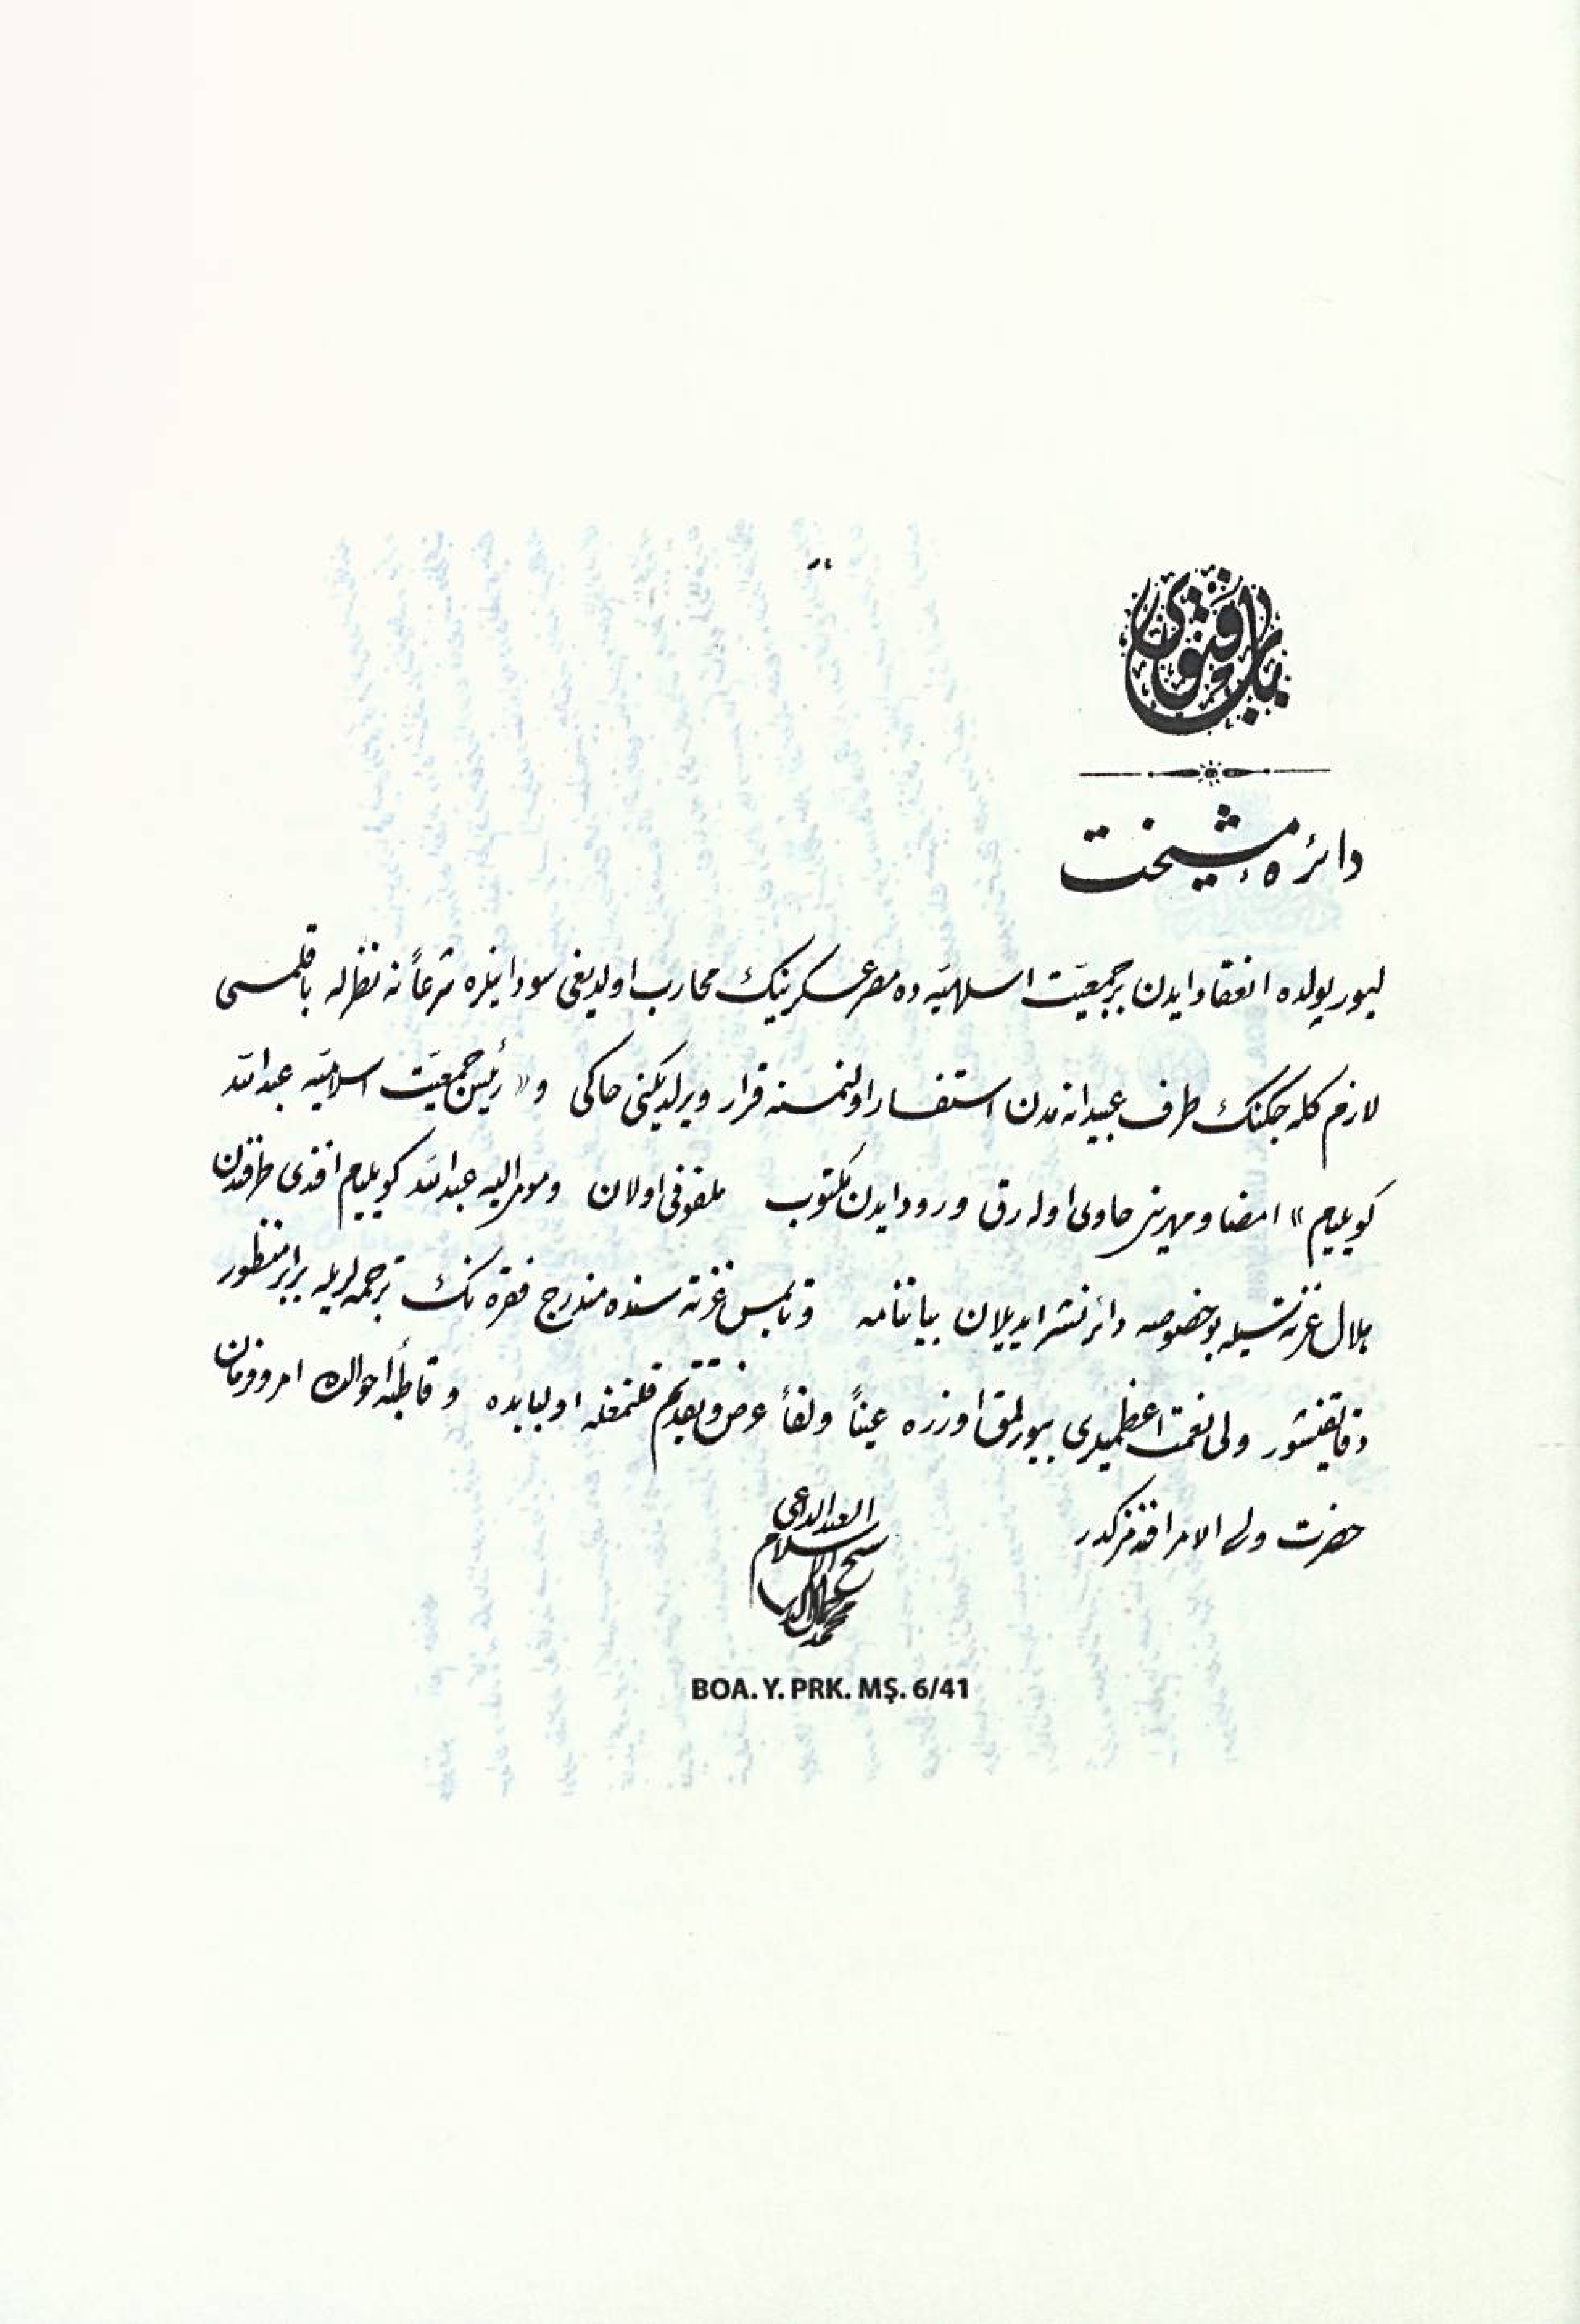 باب فتوى
دائرهٔ مشيخت
ليورپولده انعقاد ايدن بر جمعيّت اسلاميّه ده مصر عسكرينك محارب اولديغى سودانيلره شرعاً نه نظرله باقلمسى
لازم كله جكنك طرف عبيدانه مدن استفسار اولنمسنه قرار ويرلديكنى حاكى و « رئيس جمعيّت اسلاميّه عبد الله
كويليام » امضا و مهرينى حاوى اوله رق ورود ايدن مكتوب ملفوفى اولان و مومى اليه عبد الله كويليام افندى طرفندن
هلال غزته سيله بو خصوصه دائر نشر ايديلان بياننامه و تايمس غزته سنده مندرج فقره نك ترجمه لريله برابر منظور
دقايقنشور ولى نعمت اعظميلرى بيورلمق اوزره عيناً و لفاً عرض و تقديم قلنمغله اولبابده و قاطبهٔ احوالده امر و فرمان
حضرت ولى الامر افندمزكدر
العبد الداعى
شيخ الاسلام
محمد جمال الدين
BOA. Y. PRK. MŞ. 6/41